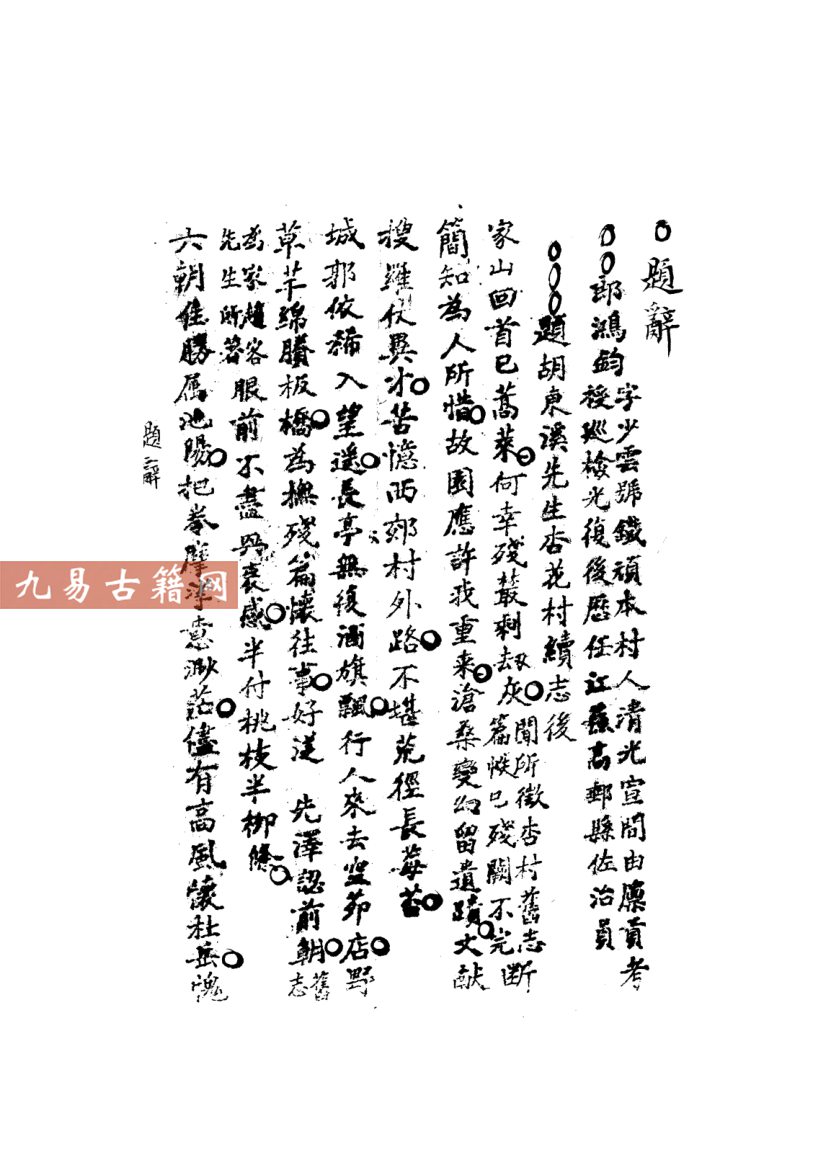 題辭
郎鴻鈞字少雲號鐵頑本村人清光宣間由廩貢考
授巡檢光復後歷任江蘇高郵縣佐治員
題胡東溪先生杏花村續志後
家山回首已蒿萊何幸殘叢剩劫灰聞所徵杏村舊志斷
篇帙已殘闕不完
簡知為人所惜故園應許我重來滄桑變幻留遺蹟文献
搜羅仗異才苦憶西郊村外路不堪荒徑長莓苔
城郭依稀入望遥長亭無復酒旗飄行人來去空茆店野
草芊綿賸板橋為撫殘篇懷往事好從 先澤認前朝舊志
為家趙客
先生所著
眼前不盡興衰感半付桃枝半柳條
六朝佳勝属池陽把卷摩挲意渺茫儘有高風懷杜岳愧
題辭
九易古籍网